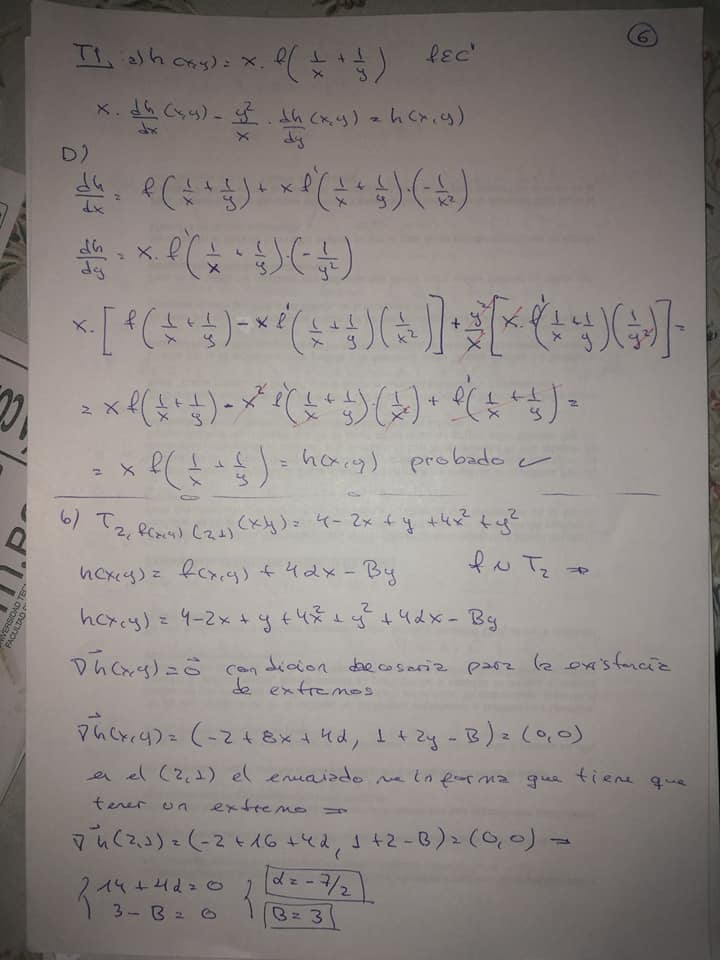 6
T1, a) h(x,y) = x. f(1/x + 1/y) f∈C'
x. dh/dx (x,y) - y²/x . dh/dy (x,y) = h(x,y)
D)
dh/dx = f(1/x + 1/y) + x f'(1/x + 1/y).(-1/x²)
dh/dy = x. f'(1/x + 1/y).(-1/y²)
x. [f(1/x + 1/y) - x f'(1/x + 1/y)(1/x²)] + y²/x [x. f'(1/x + 1/y)(1/y²)] =
= x f(1/x + 1/y) - x² f'(1/x + 1/y).(1/x²) + f'(1/x + 1/y) =
= x f(1/x + 1/y) = h(x,y) probado ✓
b) T2, f(x,y) (2,1) (x,y) = 4-2x + y + 4x² + y²
h(x,y) = f(x,y) + 4αx - By f ~ T2 ⇒
h(x,y) = 4-2x + y + 4x² + y² + 4αx - By
∇h(x,y) = 0 condicion necesaria para la existencia
de extremos
∇h(x,y) = (-2 + 8x + 4α, 1 + 2y - B) = (0,0)
en el (2,1) el enunciado me informa que tiene que
tener un extremo ⇒
∇h(2,1) = (-2 + 16 + 4α, 1 + 2 - B) = (0,0) ⇒
{ 14 + 4α = 0 } α = -7/2
3 - B = 0 B = 3
UNIVERSIDAD TEC
FACULTAD